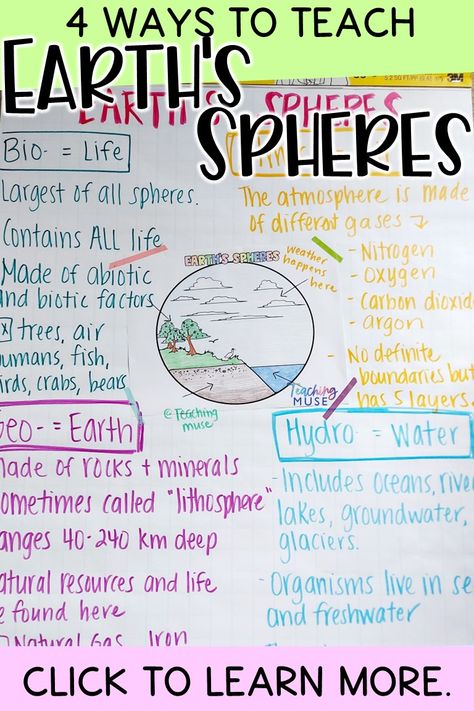 4 WAYS TO TEACH
EARTH'S
SPHERES
3M
EARTH'S SPHERES
Bio- = Life
Largest of all spheres.
Contains ALL life
Made of abiotic
and biotic factors
trees, air
fish,
crabs, bears
The atmosphere is made
of different gases
- Nitrogen
- Oxygen
- Carbon dioxid
- argon
- No definite
boundaries but
has 5 layers.
EARTH'S SPHERES
Weather
happens
here
Teaching
MUSE
@Teaching
muse
Geo- = Earth
Made of rocks + minerals
Sometimes called "lithosphere"
Ranges 40-240 km deep
Natural resources and life
found here
Natural Gas, Iron
Hydro- = Water
- Includes oceans, river
lakes, groundwater,
glaciers.
- Organisms live in se
and freshwater
CLICK TO LEARN MORE.